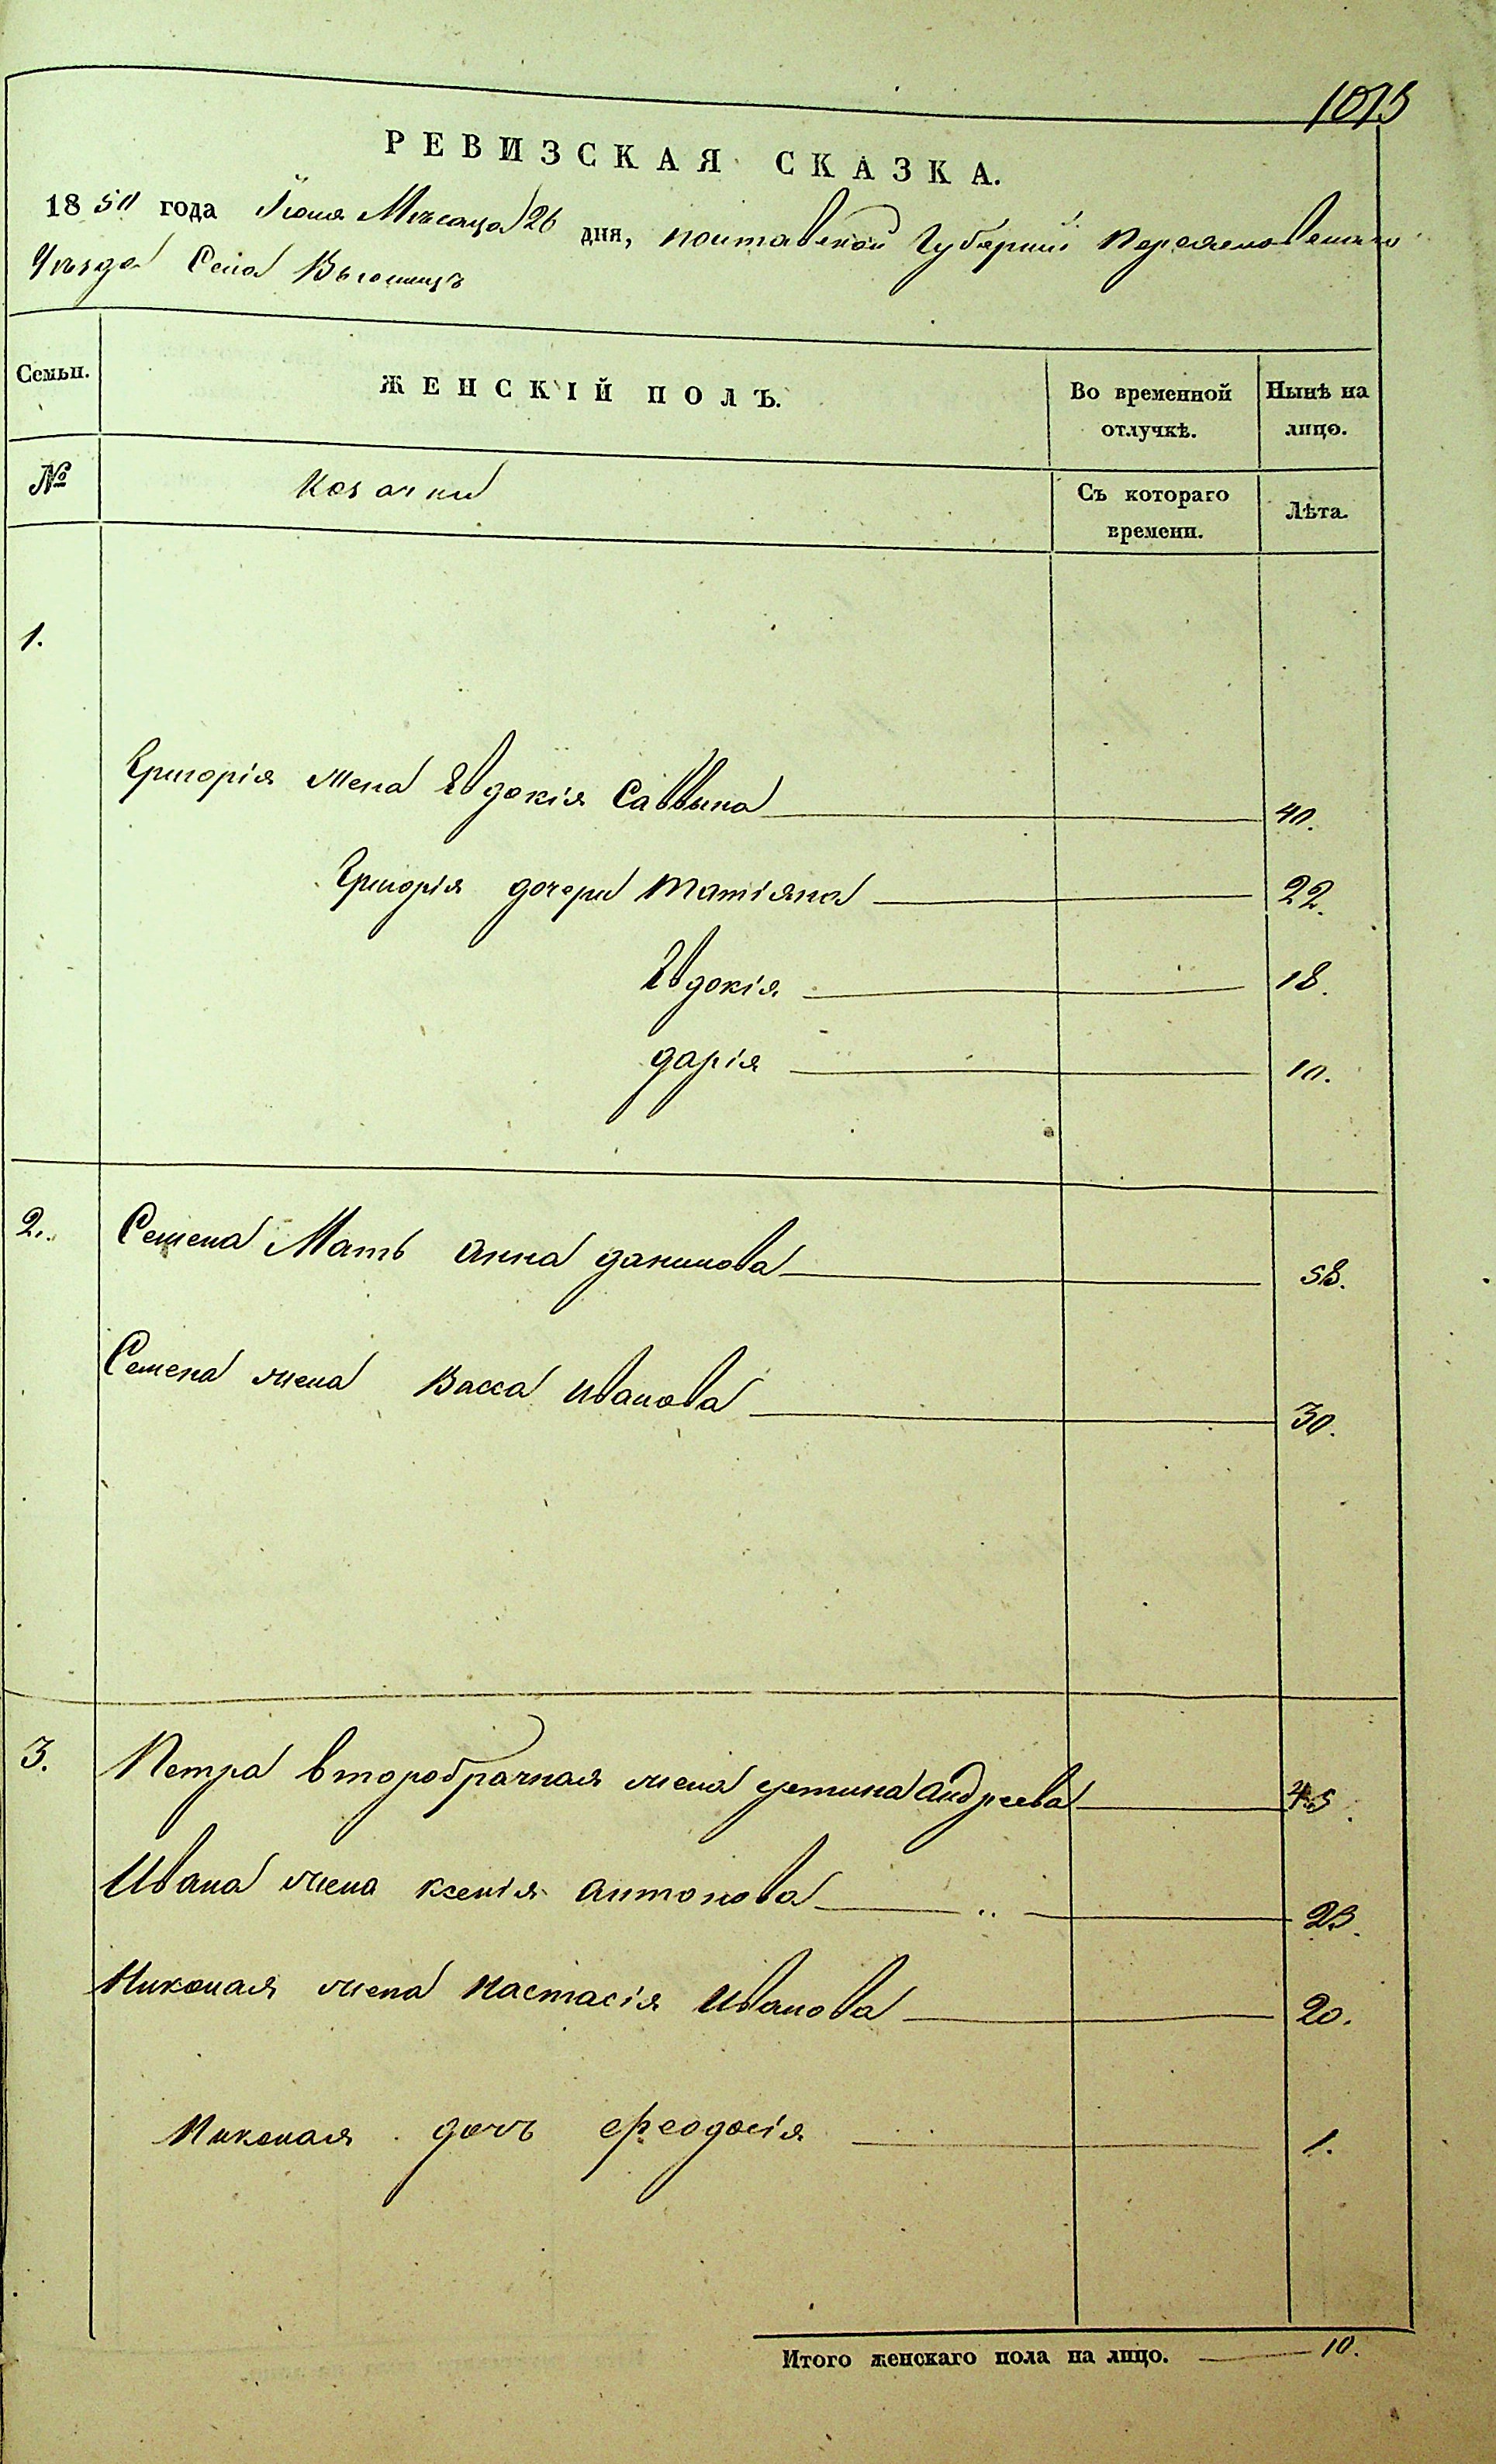 1013
РЕВИЗСКАЯ СКАЗКА.
1850 года Июня Месяца 26 дня, полтавской Губерниї переясловскаго
Уезда Села
Семьи. ЖЕНСКІЙ ПОЛЪ. Во временной отлучкѣ. Нынѣ на лицо.
№ козачки Съ котораго времени. Лѣта.
1.
Григорія жена Евдокія Саввына 40.
Григорія дочери татіяна 22.
Евдокія 18.
дарія 10.
2. Семена Мать анна данилова 58.
Семена жена Васса иванова 30.
3. Петра второбрачная жена устина андреева 45.
Ивана жена ксенія антонова 23.
Николая жена настасія иванова 20.
Николая дочъ феодосія 1.
Итого женскаго пола на лицо. 10.